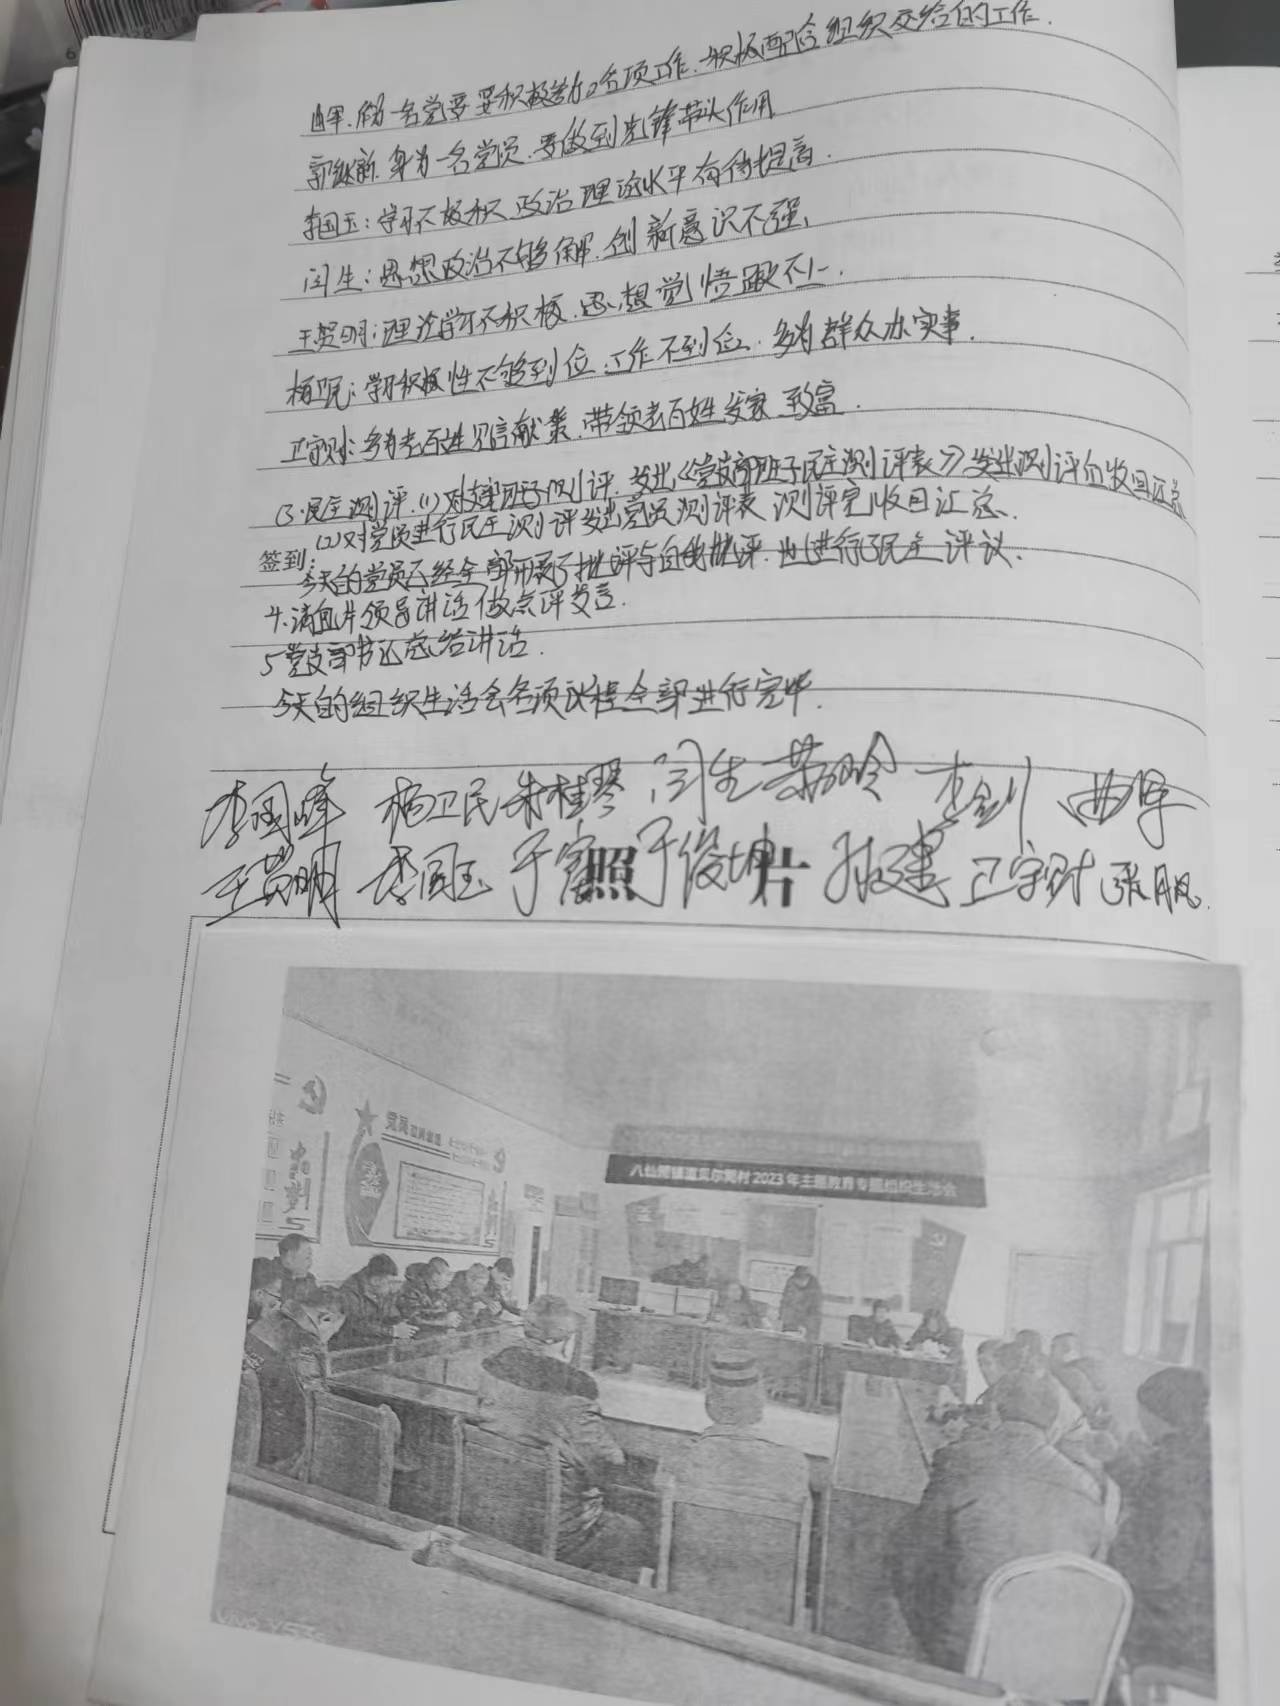 做为一名党要要积极参加各项工作.积极配合组织交给的工作.
郭继新.身为一名党员.要做到先锋带头作用
李国玉:学习不极积 政治理论水平有待提高.
闫生:思想政治不够 创新意识不强,
王贺明:理论学习不积极.思想觉悟跟不上.
杨卫民:学习积极性不够到位.工作不到位.多为群众办实事.
卫守财:多为老百姓 献策.带领老百姓发家致富.
3.民主测评.(1)对支部班子测评.发出《党支部班子民主测评表》发出测评后收回汇总
(2)对党员进行民主测评发出党员测评表 测评完收回汇总.
签到:
今天的党员 经全部开展了批评与自我批评.也进行了民主评议.
4.请包片领导讲话做点评发言.
5党支部书记总结讲话.
今天的组织生活会各项议程全部进行完毕.
李国峰 杨卫民 朱桂琴 闫生 李剑 曲军
王贺明 李国玉 于 于俊坤 卫守财 张凤
照 片
党员
2023年主题教育专题组织生活会
vivo Y53s